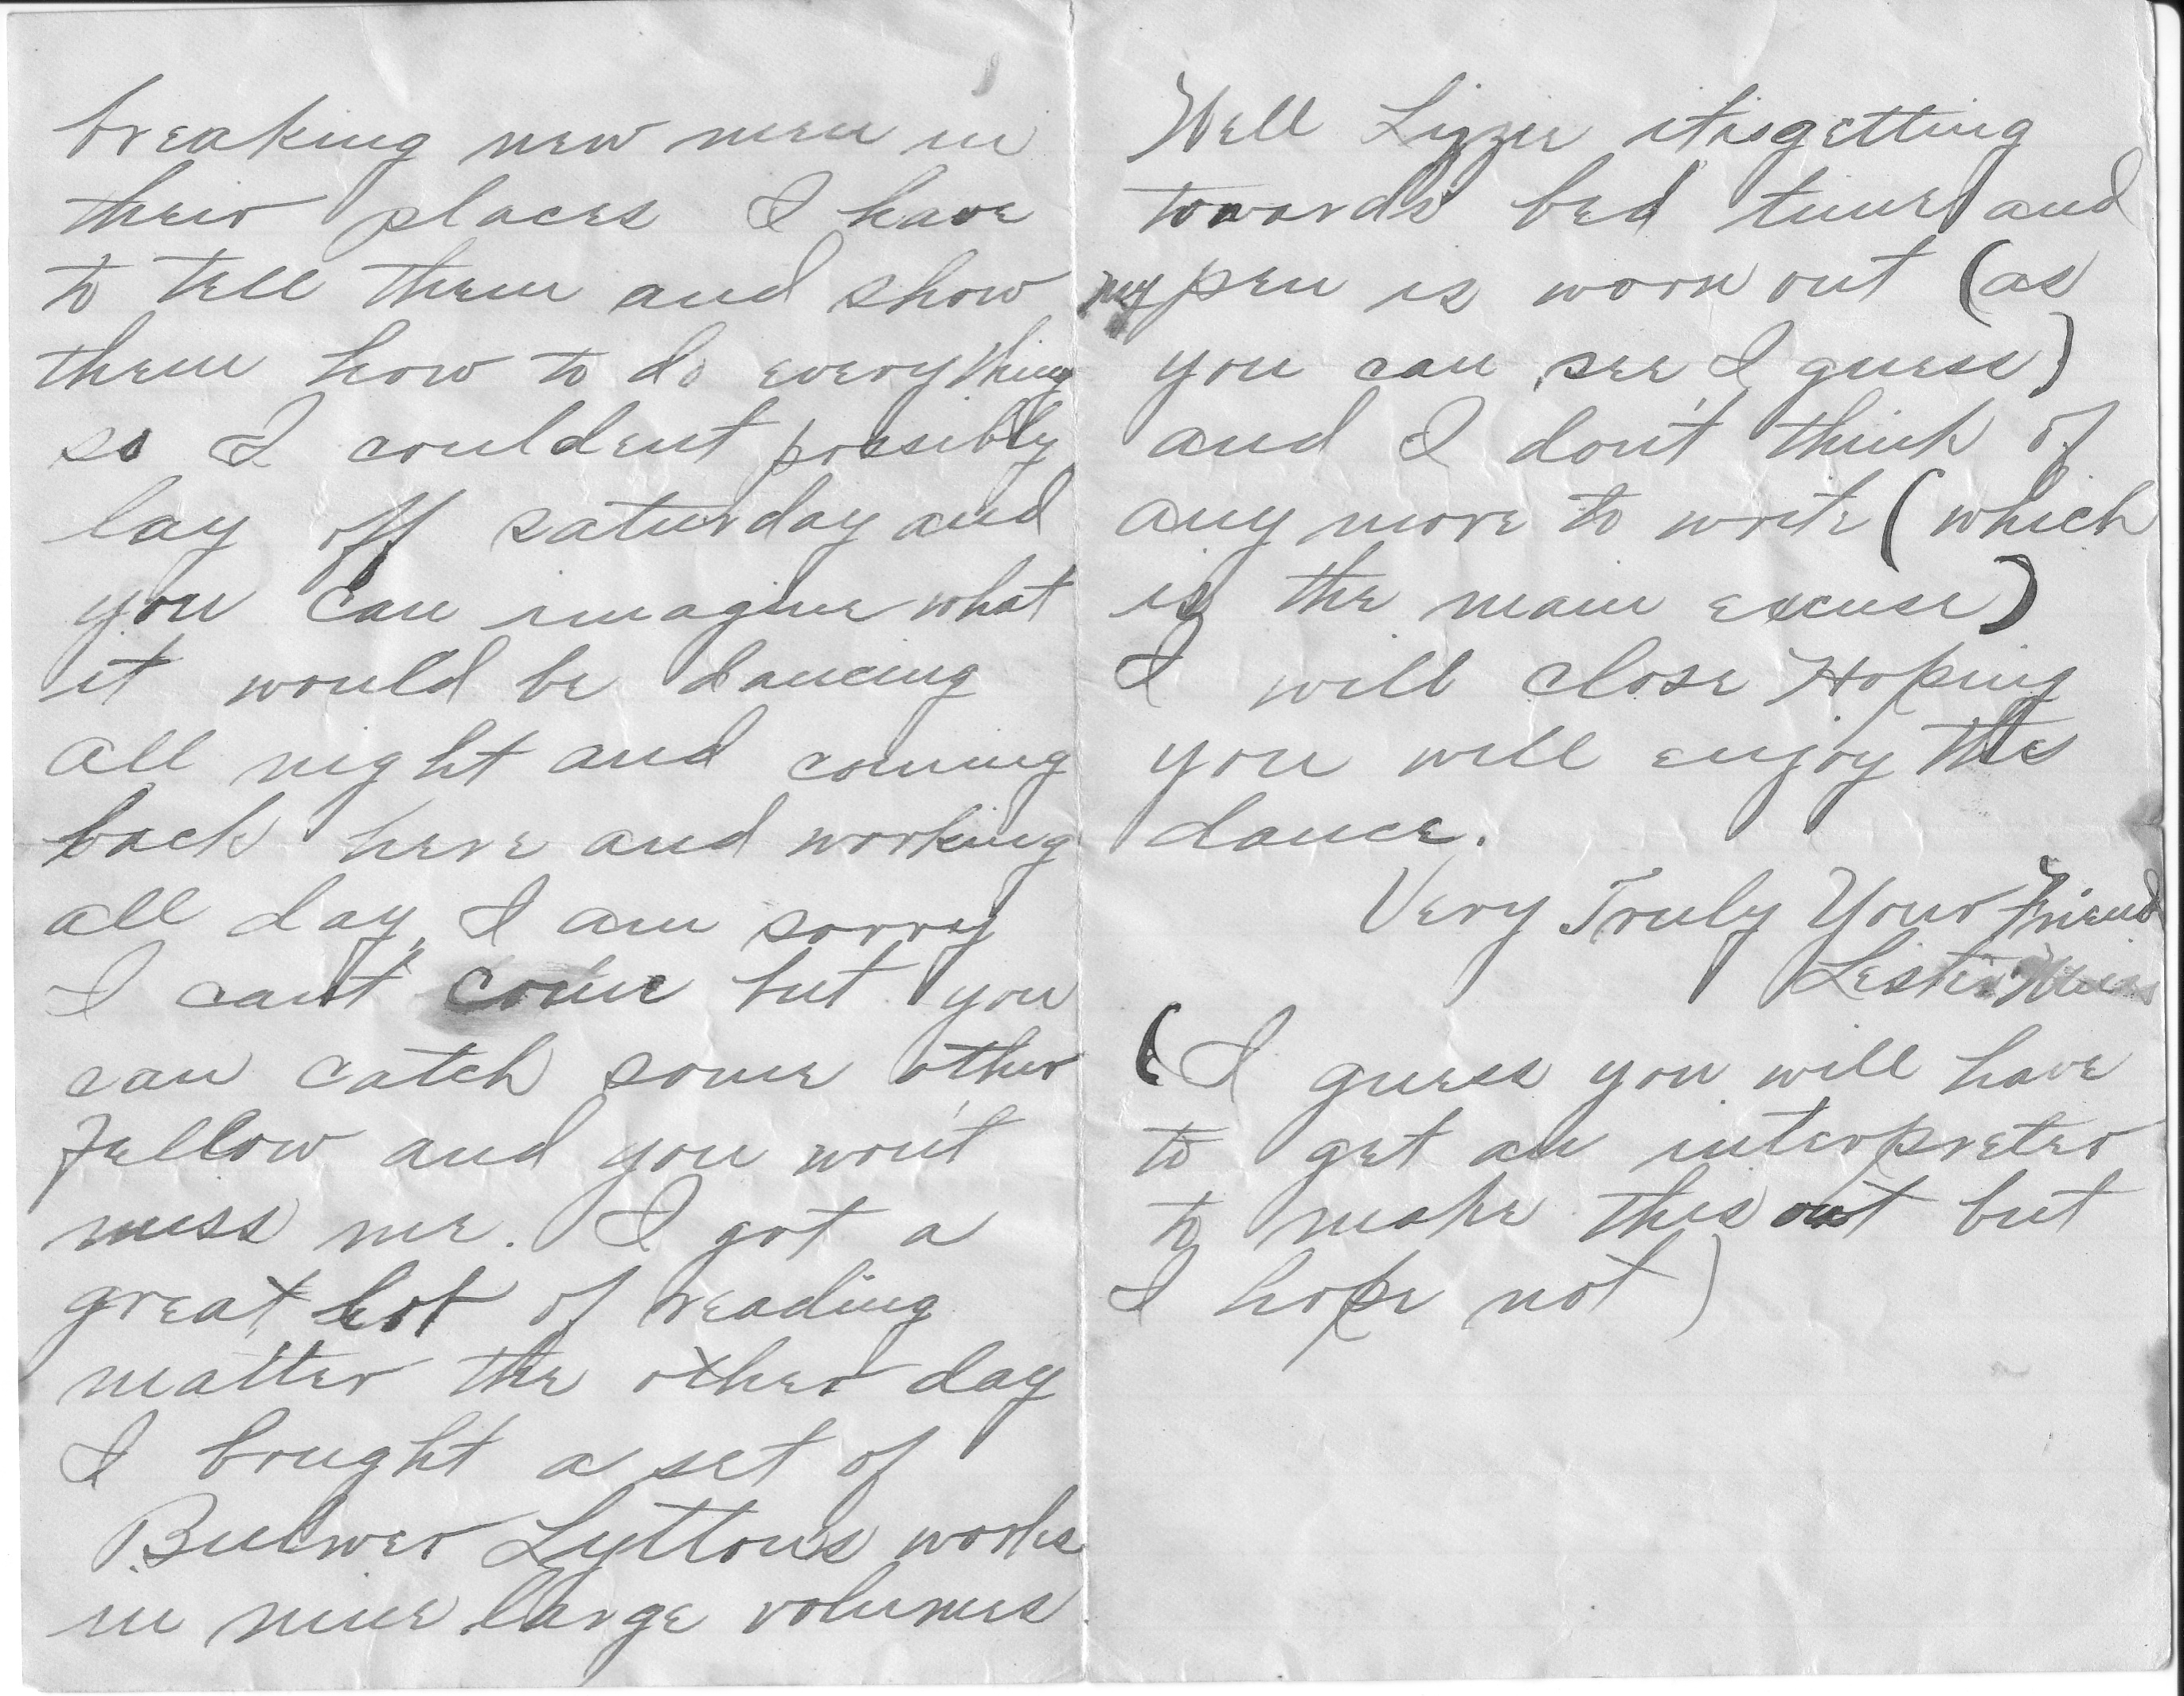 breaking new men in
their places I have
to tell them and show
them how to do everything
so I couldent possibly
lay off saturday and
you can imagine what
it would be dancing
all night and coming
back here and working
all day, I am sorry
I cant come but you
can catch some other
fellow and you won't
miss me. I got a
great lot of reading
matter the other day
I bought a set of
Bulwer Lyttons works
in nine large volumes
Well Lizzie it is getting
towards bed time and
my pen is worn out (as
you can see I guess)
and I don't think of
any more to write (which
is the main excuse)
I will close Hoping
you will enjoy the
dance.
Very Truly Your Friend
Lester
(I guess you will have
to get an interpreter
to make this out but
I hope not)